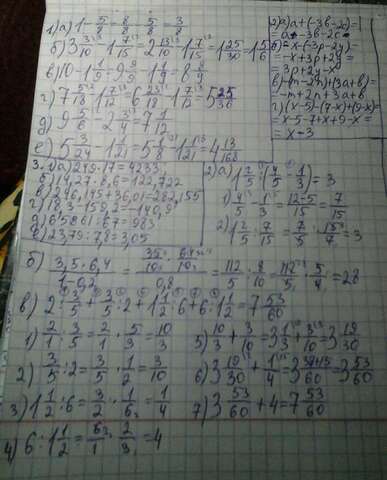 1) а) 1 - 5/8 = 8/8 - 5/8 = 3/8
б) 3 3/10 - 1 7/15 = 2 13/10 - 1 7/15 = 1 25/30 = 1 5/6
в) 10 - 1 1/9 = 9 9/9 - 1 1/9 = 8 8/9
г) 7 5/18 - 1 7/12 = 6 23/18 - 1 7/12 = 5 25/36
д) 9 5/6 - 2 3/4 = 7 1/12
е) 5 3/24 - 1 1/21 = 5 1/8 - 1 1/21 = 4 13/168
2) а) a + (-3b - 2c) =
= a - 3b - 2c
б) -x - (-3p - 2y) =
= -x + 3p + 2y =
= 3p + 2y - x
в) -(m - 2n) + (3a + b) =
= -m + 2n + 3a + b
г) (x - 5) - (7 - x) + (9 - x) =
= x - 5 - 7 + x + 9 - x =
= x - 3
3. а) 249 · 17 = 4233
б) 14,27 · 8,6 = 122,722
в) 246,145 + 36,01 = 282,155
г) 18,3 - 159,2 = -140,9
д) 65861 : 67 = 983
е) 23,79 : 7,8 = 3,05
2) а) 1 2/5 : (4/5 - 1/3) = 3
1) 4/5 - 1/3 = 12-5/15 = 7/15
2) 1 2/5 : 7/15 = 7/5 · 15/7 = 3
б) 3,5 · 6,4 / 1 - 0,2 = 35/10 · 64/10 / 0,8 = 112/5 : 8/10 = 112/5 · 5/4 = 28
в) 2 : 3/5 + 3/5 : 2 + 1 1/2 : 6 + 6 : 1 1/2 = 7 53/60
1) 2/1 : 3/5 = 2/1 · 5/3 = 10/3
2) 3/5 : 2 = 3/5 · 1/2 = 3/10
3) 1 1/2 : 6 = 3/2 · 1/6 = 1/4
4) 6 : 1 1/2 = 6/1 · 2/3 = 4
5) 10/3 + 3/10 = 3 1/3 + 3/10 = 3 19/30
6) 3 19/30 + 1/4 = 3 38+15/60 = 3 53/60
7) 3 53/60 + 4 = 7 53/60